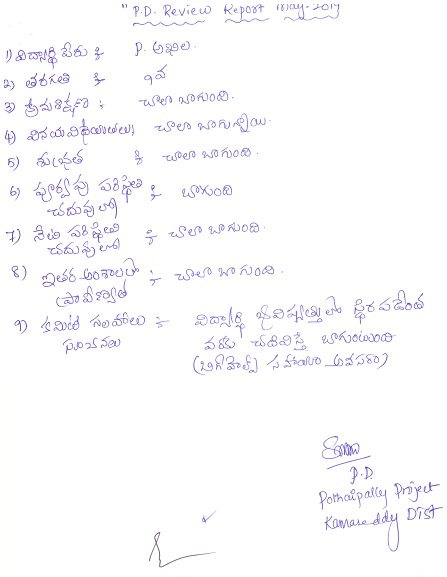 "P.D. Review Report May-2019
1) విద్యార్థి పేరు :- P. అఖిల.
2) తరగతి :- 9వ
3) క్రమశిక్షణ : చాలా బాగుంది.
4) వినయవిధేయతలు; చాలా బాగున్నాయి.
5) శుభ్రత :- చాలా బాగుంది.
6) పూర్వపు పరిస్థితి :- బాగుంది
చదువులో
7) నేటి పరిస్థితి :- చాలా బాగుంది.
చదువులో
8) ఇతర అంశాలలో :- చాలా బాగుంది.
ప్రావీణ్యత
9) కమిటీ సలహాలు :- విద్యార్థి భవిష్యత్తులో స్థిరపడేంత
సూచనలు వరకు చదివిస్తే బాగుంటుంది
(బిగ్‌హెల్ప్ సహాయం అవసరం)
P.D.
Pothaipally Project
Kamareddy Dist